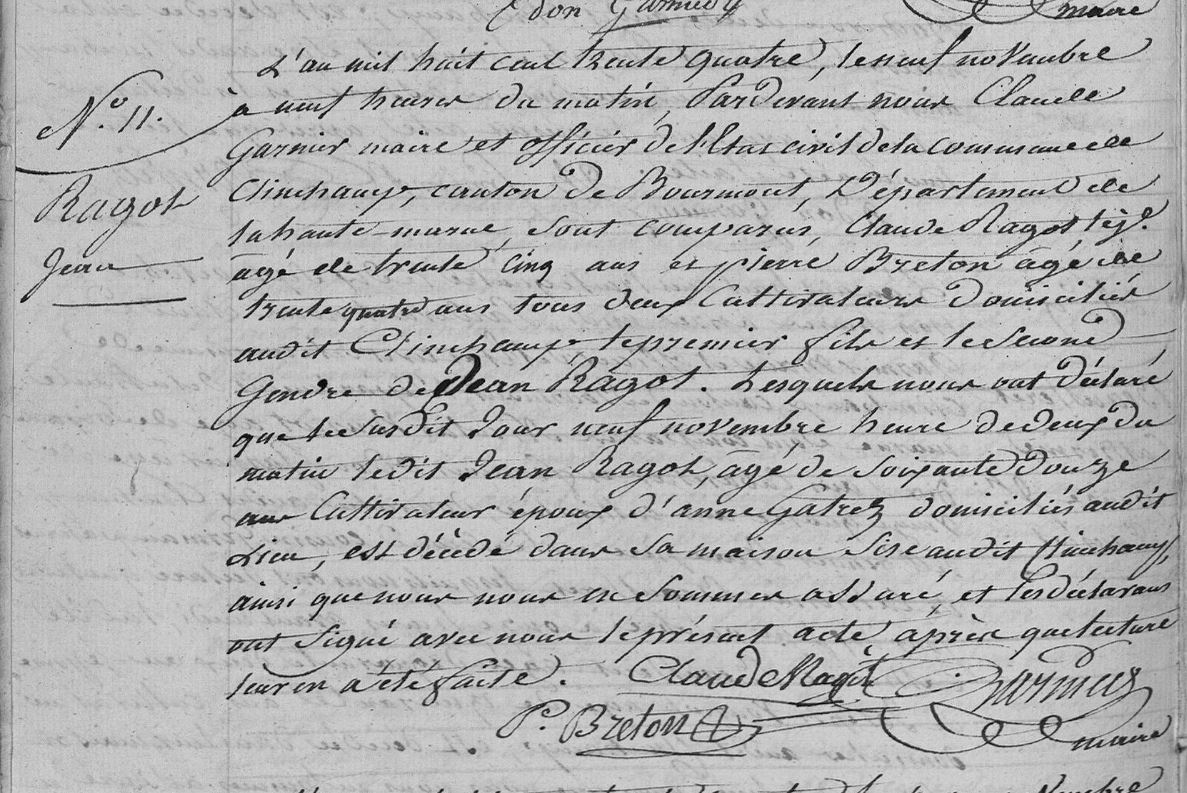 maire
L'an mil huit cent trente quatre, le neuf novembre
N.° 11.
à neuf heures du matin, Pardevant nous Claude
Garnier maire et officier de l'Etat civil de la commune de
Clinchamp, canton de Bourmont, Département de
Ragot
la haute-marne, sont comparus, Claude Ragot
Jean
agé de trente cinq ans et pierre Breton agé de
trente quatre ans tous deux Cultivateurs Domiciliés
audit Clinchamp le premier fils et le second
Gendre de Jean Ragot. Lesquels nous ont déclaré
que le susdit Jour neuf novembre heure de deux du
matin ledit Jean Ragot, agé de soixante Douze
ans Cultivateur époux d'anne Gatrez domiciliés audit
Lieu, est décédé dans sa maison sise audit Clinchamp,
ainsi que nous nous en sommes assuré, et les déclarans
ont signé avec nous le présent acte après que lecture
leur en a été faite. Claude Ragot Garnier
P.e Breton maire